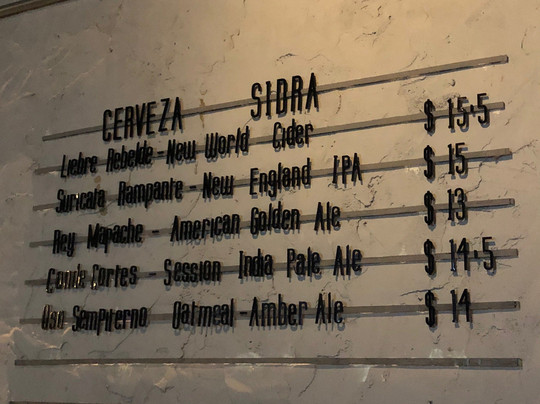 CERVEZA SIDRA
Liebre Rebelde - New World Cider $ 15.5
Suricata Rampante - New England IPA $ 15
Rey Mapache - American Golden Ale $ 13
Conde Cortes - Session India Pale Ale $ 14.5
Sempiterno Oatmeal - Amber Ale $ 14